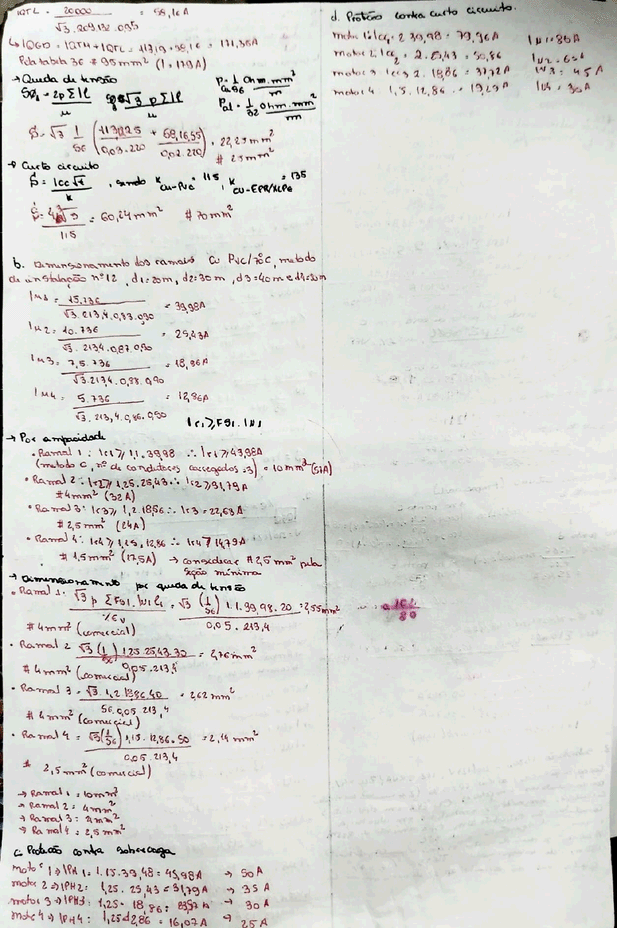 IQTL = 20000 = 58,16A
√3.209,132.0,95
↳ IQGD = IQTM + IQTL = 113,19 + 58,16 = 171,35A
Pela tabela 36 # 95mm² (I = 179A)
→ Queda de tensão
ρCu = 1/56 Ohm.mm²/m
ρAl = 1/32 Ohm.mm²/m
= 22,23mm²
# 25mm²
→ Curto circuito
S = Icc√t / k , sendo k Cu-PVC = 115, k Cu-EPR/XLPE = 135
= 60,24mm² #70mm²
115
b. Dimensionamento dos ramais Cu PVC/70°C, metodo
de instalação nº 12, d1=20m, d2=30m, d3=40m e d4=50m
IM1 = 15.736 = 39,98A
√3.213,4.0,83.0,90
IM2 = 10.736 = 25,43A
√3.213,4.0,87.0,90
IM3 = 7,5.736 = 18,86A
√3.213,4.0,88.0,90
IM4 = 5.736 = 12,86A
√3.213,4.0,86.0,90
Ic1 ≥ FS1.IM1
→ Por ampacidade
• Ramal 1: Ic1 ≥ 1,1.39,98 ∴ Ic1 ≥ 43,98A
(metodo C, nº de condutores carregados = 3) = 10mm² (57A)
• Ramal 2: Ic2 ≥ 1,25.25,43 ∴ Ic2 ≥ 31,79A
#4mm² (32A)
• Ramal 3: Ic3 ≥ 1,2.18,86 ∴ Ic3 = 22,63A
# 2,5mm² (24A)
• Ramal 4: Ic4 ≥ 1,15.12,86 ∴ Ic4 ≥ 14,79A
# 1,5mm² (17,5A) → considerar # 2,5mm² pela
seção mínima
→ Dimensionamento por queda de tensão
• Ramal 1: = √3 (1/56) 1,1.39,98.20 = 2,55mm²
0,05.213,4
#4mm² (comercial)
• Ramal 2 √3 (1/56) 1,25.25,43.30 = 2,76mm²
0,05.213,4
#4mm² (comercial)
• Ramal 3 = √3.1,2.18,86.40 = 2,62mm²
56.0,05.213,4
# 4mm² (comercial)
• Ramal 4 = √3(1/56)1,15.12,86.50 = 2,14mm²
0,05.213,4
# 2,5mm² (comercial)
→ Ramal 1 = 10mm²
→ Ramal 2 = 4mm²
→ Ramal 3 = 4mm²
→ Ramal 4 = 2,5mm²
c. Proteção contra sobrecarga
motor 1 → IPH1 = 1,15.39,98 = 45,98A → 50A
motor 2 → IPH2 = 1,25.25,43 = 31,79A → 35A
motor 3 → IPH3 = 1,25.18,86 = → 30A
motor 4 → IPH4: 1,25.12,86 = 16,07A → 25A
d. Proteção contra curto circuito.
motor 1: Icc1 = 2.39,98 = 79,96A IN1 = 80A
motor 2: Icc2 = 2.25,43 = 50,86 IN2 = 63A
motor 3: Icc3 = 2.18,86 = 37,72A IN3 = 45A
motor 4: 1,5.12,86 = 19,29A IN4 = 30A